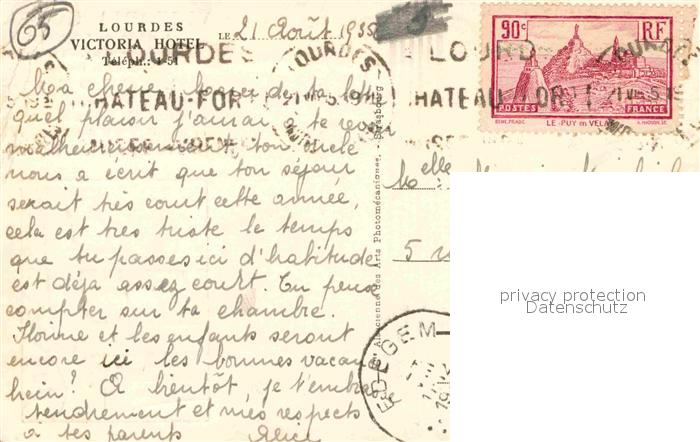 65
LOURDES
VICTORIA HOTEL
Téléph.: 1-51
LE 21 Août 1935
LOURDES
CHATEAU-FORT
LOURDES
LOURDES
CHATEAU-FORT
90c RF
POSTES FRANCE
LE PUY en VELAY
Ma chère
quel plaisir j'aurai à te revoir
malheureusement ton oncle
nous a écrit que ton séjour
serait très court cette année,
cela est très triste le temps
que tu passes ici d'habitude
est déja assez court. Tu peux
compter sur ta chambre.
et les enfants seront
encore ici les bonnes vacances
hein! A bientôt, je t'embrasse
tendrement et mes respects
à tes parents Alice
Melle
5
des Arts Photomécaniques, Strasbourg
EDEGEM
privacy protection
Datenschutz